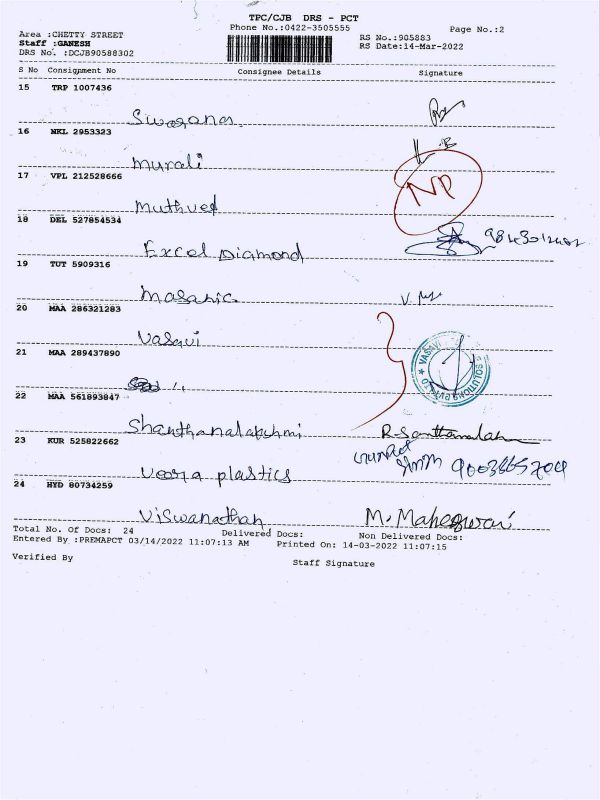 TPC/CJB DRS - PCT
Phone No.:0422-3505555
Page No.:2
Area :CHETTY STREET
Staff :GANESH
DRS No. :DCJB90588302
RS No.:905883
RS Date:14-Mar-2022
S No Consignment No Consignee Details Signature
15 TRP 1007436
Swapana
16 NKL 2953323
Murali
17 VPL 212528666
NP
Muthuvel
18 DEL 527854534
Excel Diamond
19 TUT 5909316
20 MAA 286321283
Vasavi
21 MAA 289437890
VASAVI SOLUTIONS PVT LTD
22 MAA 561893847
Shanthanalakshmi
23 KUR 525822662
Veera plastics
24 HYD 80734259
Viswanathan M. Maheswari
Total No. Of Docs: 24 Delivered Docs: Non Delivered Docs:
Entered By :PREMAPCT 03/14/2022 11:07:13 AM Printed On: 14-03-2022 11:07:15
Verified By Staff Signature